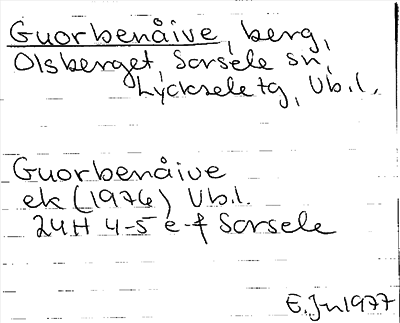 Guorbenåive, berg,
Olsberget, Sorsele sn,
Lycksele tg, Vb.l.
Guorbenåive
ek (1976) Vb.l.
24H 4-5 e-f Sorsele
E.Jn 1977